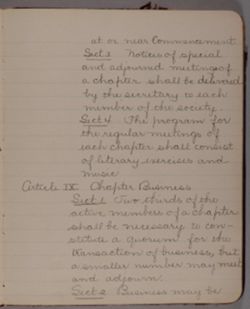 at or near Commencement
Sect 3 Notices of special
and adjourned meetings of
a chapter shall be delivered
by the secretary to each
member of the society
Sect 4 The program for
the regular meetings of
each chapter shall consist
of literary exercises and
music
Article IX Chapter Business
Sect 1 Two thirds of the
active members of a chapter
shall be necessary to con-
stitute a quorum for the
transaction of business, but
a smaller number may meet
and adjourn.
Sect 2 Business may be